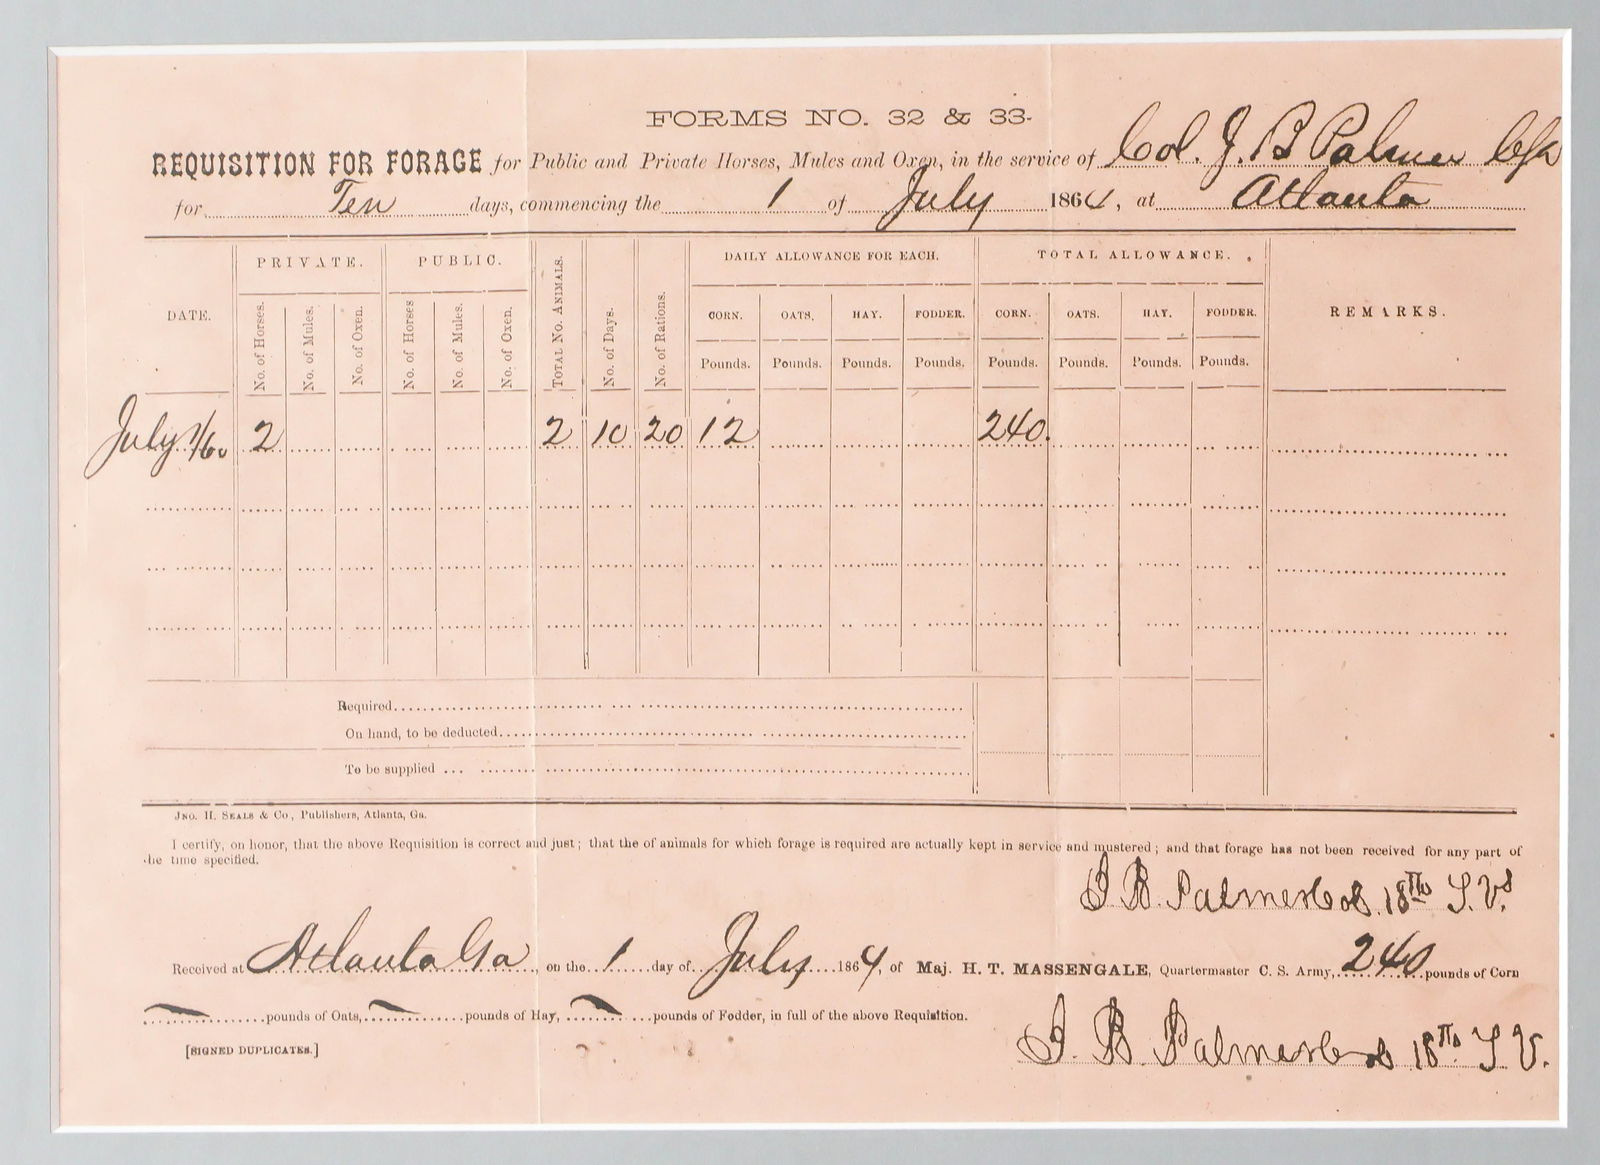 FORMS NO. 32 & 33-
REQUISITION FOR FORAGE for Public and Private Horses, Mules and Oxen, in the service of Col. J. B Palmer CSA
for Ten days, commencing the 1 of July 1864, at Atlanta
DATE. PRIVATE. PUBLIC. TOTAL NO. ANIMALS. No. of Days. No. of Rations. DAILY ALLOWANCE FOR EACH. TOTAL ALLOWANCE. REMARKS.
No. of Horses. No. of Mules. No. of Oxen. No. of Horses No. of Mules. No. of Oxen. CORN. OATS, HAY. FODDER. CORN. OATS. HAY. FODDER.
Pounds. Pounds. Pounds. Pounds. Pounds. Pounds. Pounds. Pounds.
July 2 2 10 20 12 240
Required
On hand, to be deducted
To be supplied
JNO. H. SEALS & Co, Publishers, Atlanta, Ga.
I certify, on honor, that the above Requisition is correct and just; that the of animals for which forage is required are actually kept in service and mustered; and that forage has not been received for any part of
the time specified.
J. B. Palmer Col. 18th T. Vs
Received at Atlanta Ga, on the 1 day of July 1864, of Maj. H. T. MASSENGALE, Quartermaster C. S. Army, 240 pounds of Corn
pounds of Oats, pounds of Hay, pounds of Fodder, in full of the above Requisition.
[SIGNED DUPLICATES.]
J. B Palmer Col 18th T V.